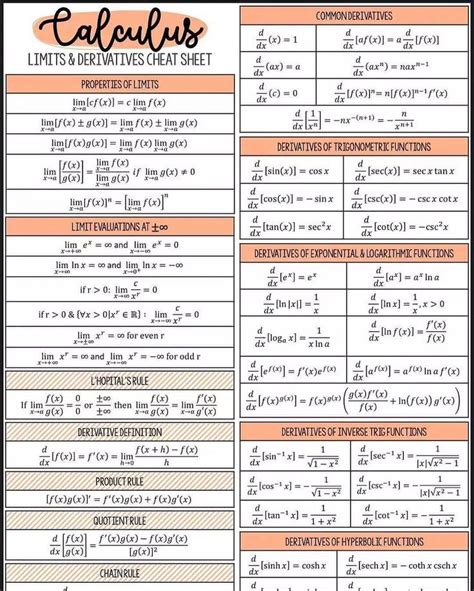 Calculus
LIMITS & DERIVATIVES CHEAT SHEET
PROPERTIES OF LIMITS
lim x→a [cf(x)] = c lim x→a f(x)
lim x→a [f(x) ± g(x)] = lim x→a f(x) ± lim x→a g(x)
lim x→a [f(x)g(x)] = lim x→a f(x) lim x→a g(x)
lim x→a [f(x)/g(x)] = lim x→a f(x) / lim x→a g(x) if lim x→a g(x) ≠ 0
lim x→a [f(x)]ⁿ = [lim x→a f(x)]ⁿ
LIMIT EVALUATIONS AT ±∞
lim x→∞ eˣ = ∞ and lim x→−∞ eˣ = 0
lim x→∞ ln x = ∞ and lim x→0 ln x = −∞
if r > 0: lim x→∞ c/xʳ = 0
if r > 0 & {∀x > 0|xʳ ∈ ℝ}: lim x→−∞ c/xʳ = 0
lim x→±∞ xʳ = ∞ for even r
lim x→∞ xʳ = ∞ and lim x→−∞ xʳ = −∞ for odd r
L'HOPITAL'S RULE
If lim x→a f(x)/g(x) = 0/0 or ±∞/∞ then lim x→a f(x)/g(x) = lim x→a f′(x)/g′(x)
DERIVATIVE DEFINITION
d/dx [f(x)] = f′(x) = lim h→0 (f(x + h) − f(x))/h
PRODUCT RULE
[f(x)g(x)]′ = f′(x)g(x) + f(x)g′(x)
QUOTIENT RULE
d/dx [f(x)/g(x)] = (f′(x)g(x) − f(x)g′(x))/[g(x)]²
CHAIN RULE
COMMON DERIVATIVES
d/dx (x) = 1 d/dx [af(x)] = a d/dx [f(x)]
d/dx (ax) = a d/dx (axⁿ) = naxⁿ⁻¹
d/dx (c) = 0 d/dx [f(x)]ⁿ = n[f(x)]ⁿ⁻¹f′(x)
d/dx [1/xⁿ] = −nx⁻⁽ⁿ⁺¹⁾ = −n/xⁿ⁺¹
DERIVATIVES OF TRIGONOMETRIC FUNCTIONS
d/dx [sin(x)] = cos x d/dx [sec(x)] = sec x tan x
d/dx [cos(x)] = − sin x d/dx [csc(x)] = − csc x cot x
d/dx [tan(x)] = sec²x d/dx [cot(x)] = −csc²x
DERIVATIVES OF EXPONENTIAL & LOGARITHMIC FUNCTIONS
d/dx [eˣ] = eˣ d/dx [aˣ] = aˣ ln a
d/dx [ln|x|] = 1/x d/dx [ln x] = 1/x, x > 0
d/dx [logₐ x] = 1/(x ln a) d/dx [ln f(x)] = f′(x)/f(x)
d/dx [e^f(x)] = f′(x)e^f(x) d/dx [a^f(x)] = a^f(x) ln a f′(x)
d/dx [f(x)^g(x)] = f(x)^g(x) (g(x)f′(x)/f(x) + ln(f(x)) g′(x))
DERIVATIVES OF INVERSE TRIG FUNCTIONS
d/dx [sin⁻¹ x] = 1/√(1 − x²) d/dx [sec⁻¹ x] = 1/(|x|√(x² − 1))
d/dx [cos⁻¹ x] = −1/√(1 − x²) d/dx [csc⁻¹ x] = −1/(|x|√(x² − 1))
d/dx [tan⁻¹ x] = 1/(1 + x²) d/dx [cot⁻¹ x] = −1/(1 + x²)
DERIVATIVES OF HYPERBOLIC FUNCTIONS
d/dx [sinh x] = cosh x d/dx [sech x] = − coth x csch x